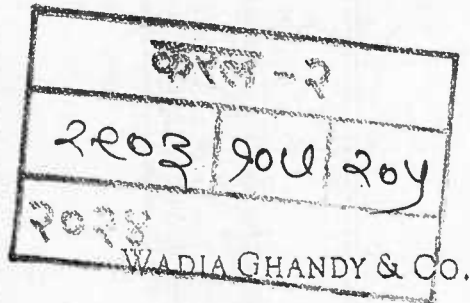 करल - २
२९०३ १०५ २०५
२०२४
WADIA GHANDY & CO.